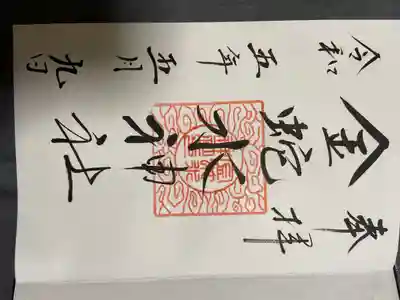 奉拝
金蛇水神社
令和五年五月九日